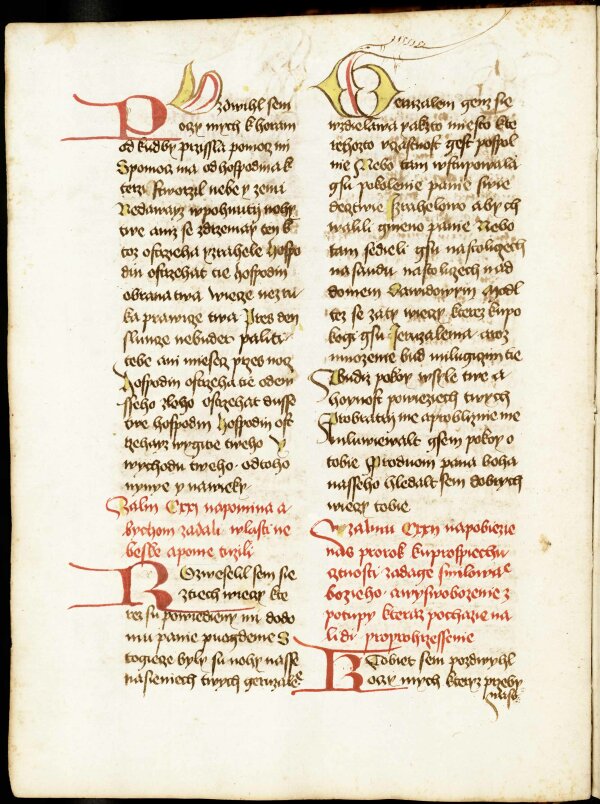 Pozdwihl sem
oczy mych k horam
od kudby przissla pomoz mi
Spomoz ma od hospodina k
terz stworzil nebe y zemi
Nedaway w pohnutij nohy
twe aniz se zdrzemay ten k
toz ostrzeha yzrahele hospo
din ostrzehat tie hospodin
obrana twa wiecze nez ru
ka prawicze twa Przes den
slunze nebudet paliti
tebe ani miesecz przes noc
hospodin ostrzeha tie odew
sseho zleho ostrzehat dusse
twe hospodin hospodin ost
rzehay wygitie tweho y
wychodu tweho odtoho
nynye y nawieky
Zalm Cxxi napomina a
bychom zadali wlasti ne
beske a pome tuzili
Rozweselil sem sie
z tiech wieczy kte
rez su powiedieny mi do do
mu panie puogdeme S
togicze byly su nohy nasse
na sieniech twych geruzale
Geruzalem genz sie
wzdielawa yakzto miesto kte
rehozto vczastnost gest pospol
nie Nebo tam wstupowala
gsu pokolenie panie swie
dectwie Izrahelowo aby ch
walili gmeno panie Nebo
tam sedieli gsu na stoliczech
na saudu na stoliczech nad
domem Dawidowym Modl
tez se zaty wieczy kterez ku po
kogi gsu Jeruzalema a roz
mnozenie bud milugiczim tie
Budiz pokoy w syle twe a
hoynost powieziech twych
Pro bratrij me a pro bliznie me
mluwiewalt gsem pokoy o
tobie Pro duom pana boha
nasseho hledalt sem dobrych
wieczy tobie
W zalmu Cxxij napobiezie
nas prorok ku prospiechu
cztnosti zadage smilowa
bozieho a wyswobozenie z
potupy kteraz pochazie na
lidi pro prohrzessenie
K Tobiet sem pozdwyhl
oczy mych kteryz przeby
wass